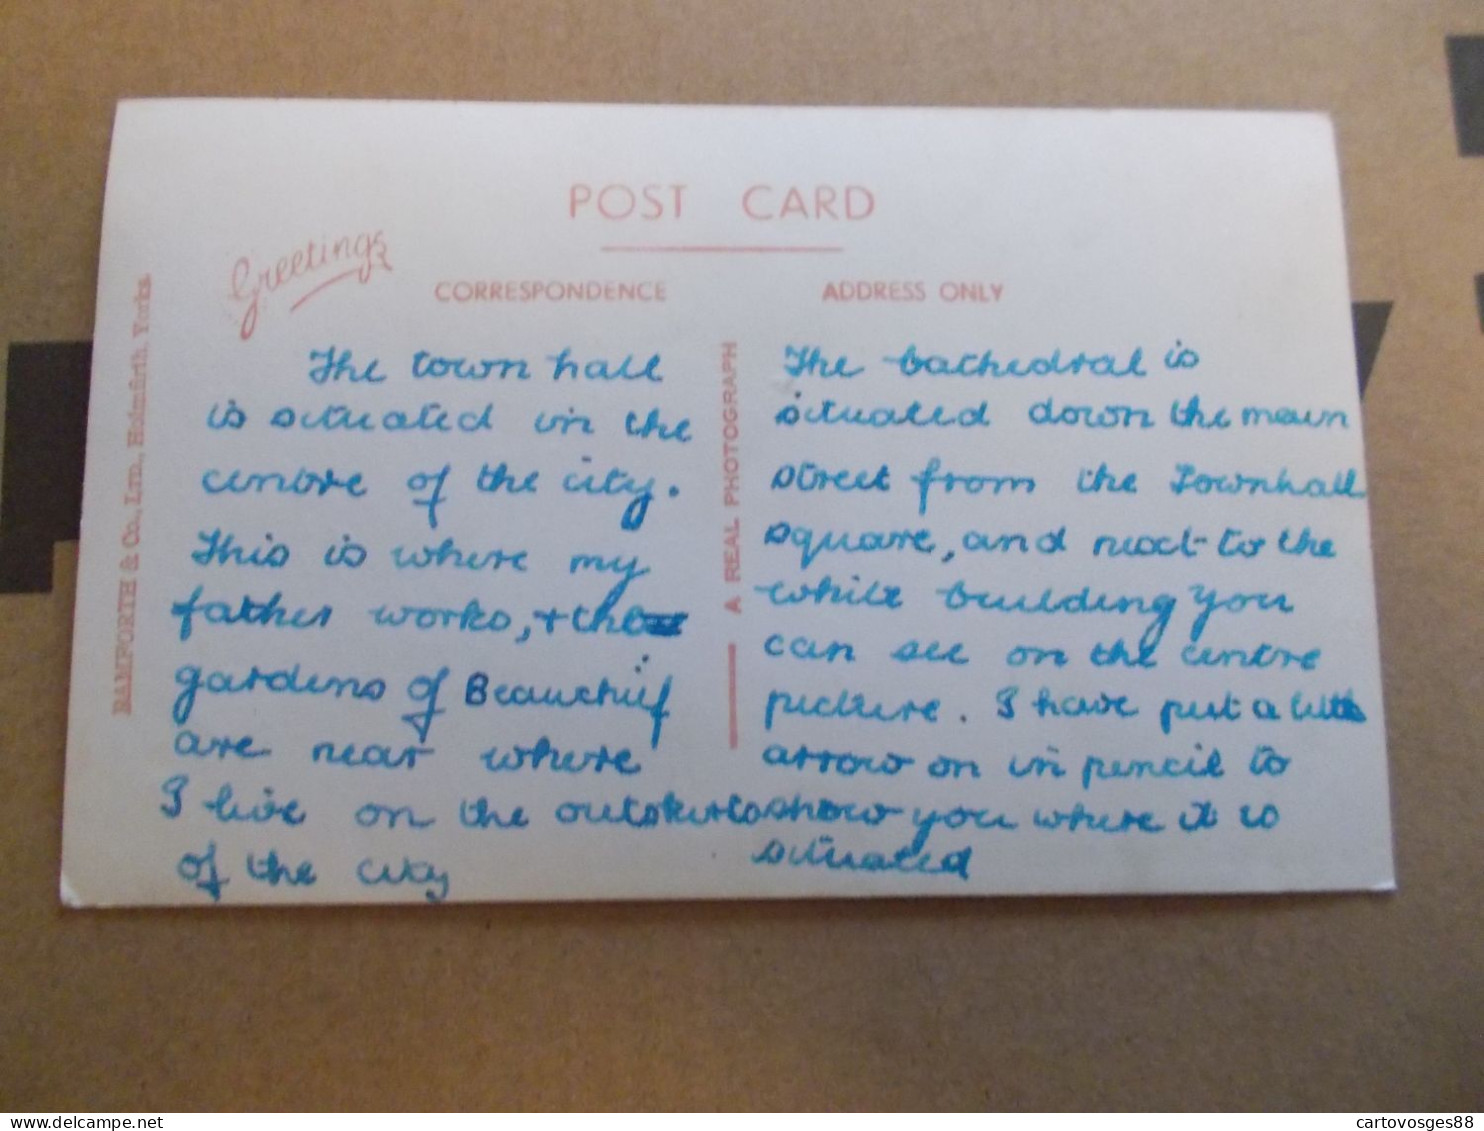 POST CARD
Greetings
CORRESPONDENCE
ADDRESS ONLY
BAMFORTH & Co., LTD., Holmfirth, Yorks.
A REAL PHOTOGRAPH
The town hall
is situated in the
centre of the city.
This is where my
father works, + the
gardens of Beauchief
are near where
I live on the outskirts
of the city
The Cathedral is
situated down the main
street from the Townhall
square, and next to the
white building you
can see on the centre
picture. I have put a little
arrow on in pencil to
show you where it is
situated
www.delcampe.net
cartovosges88